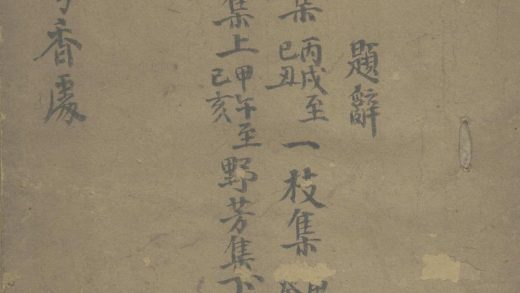 題辭
集 丙戌至己丑 一枝集
集上 甲午至己亥 野芳集下
香處